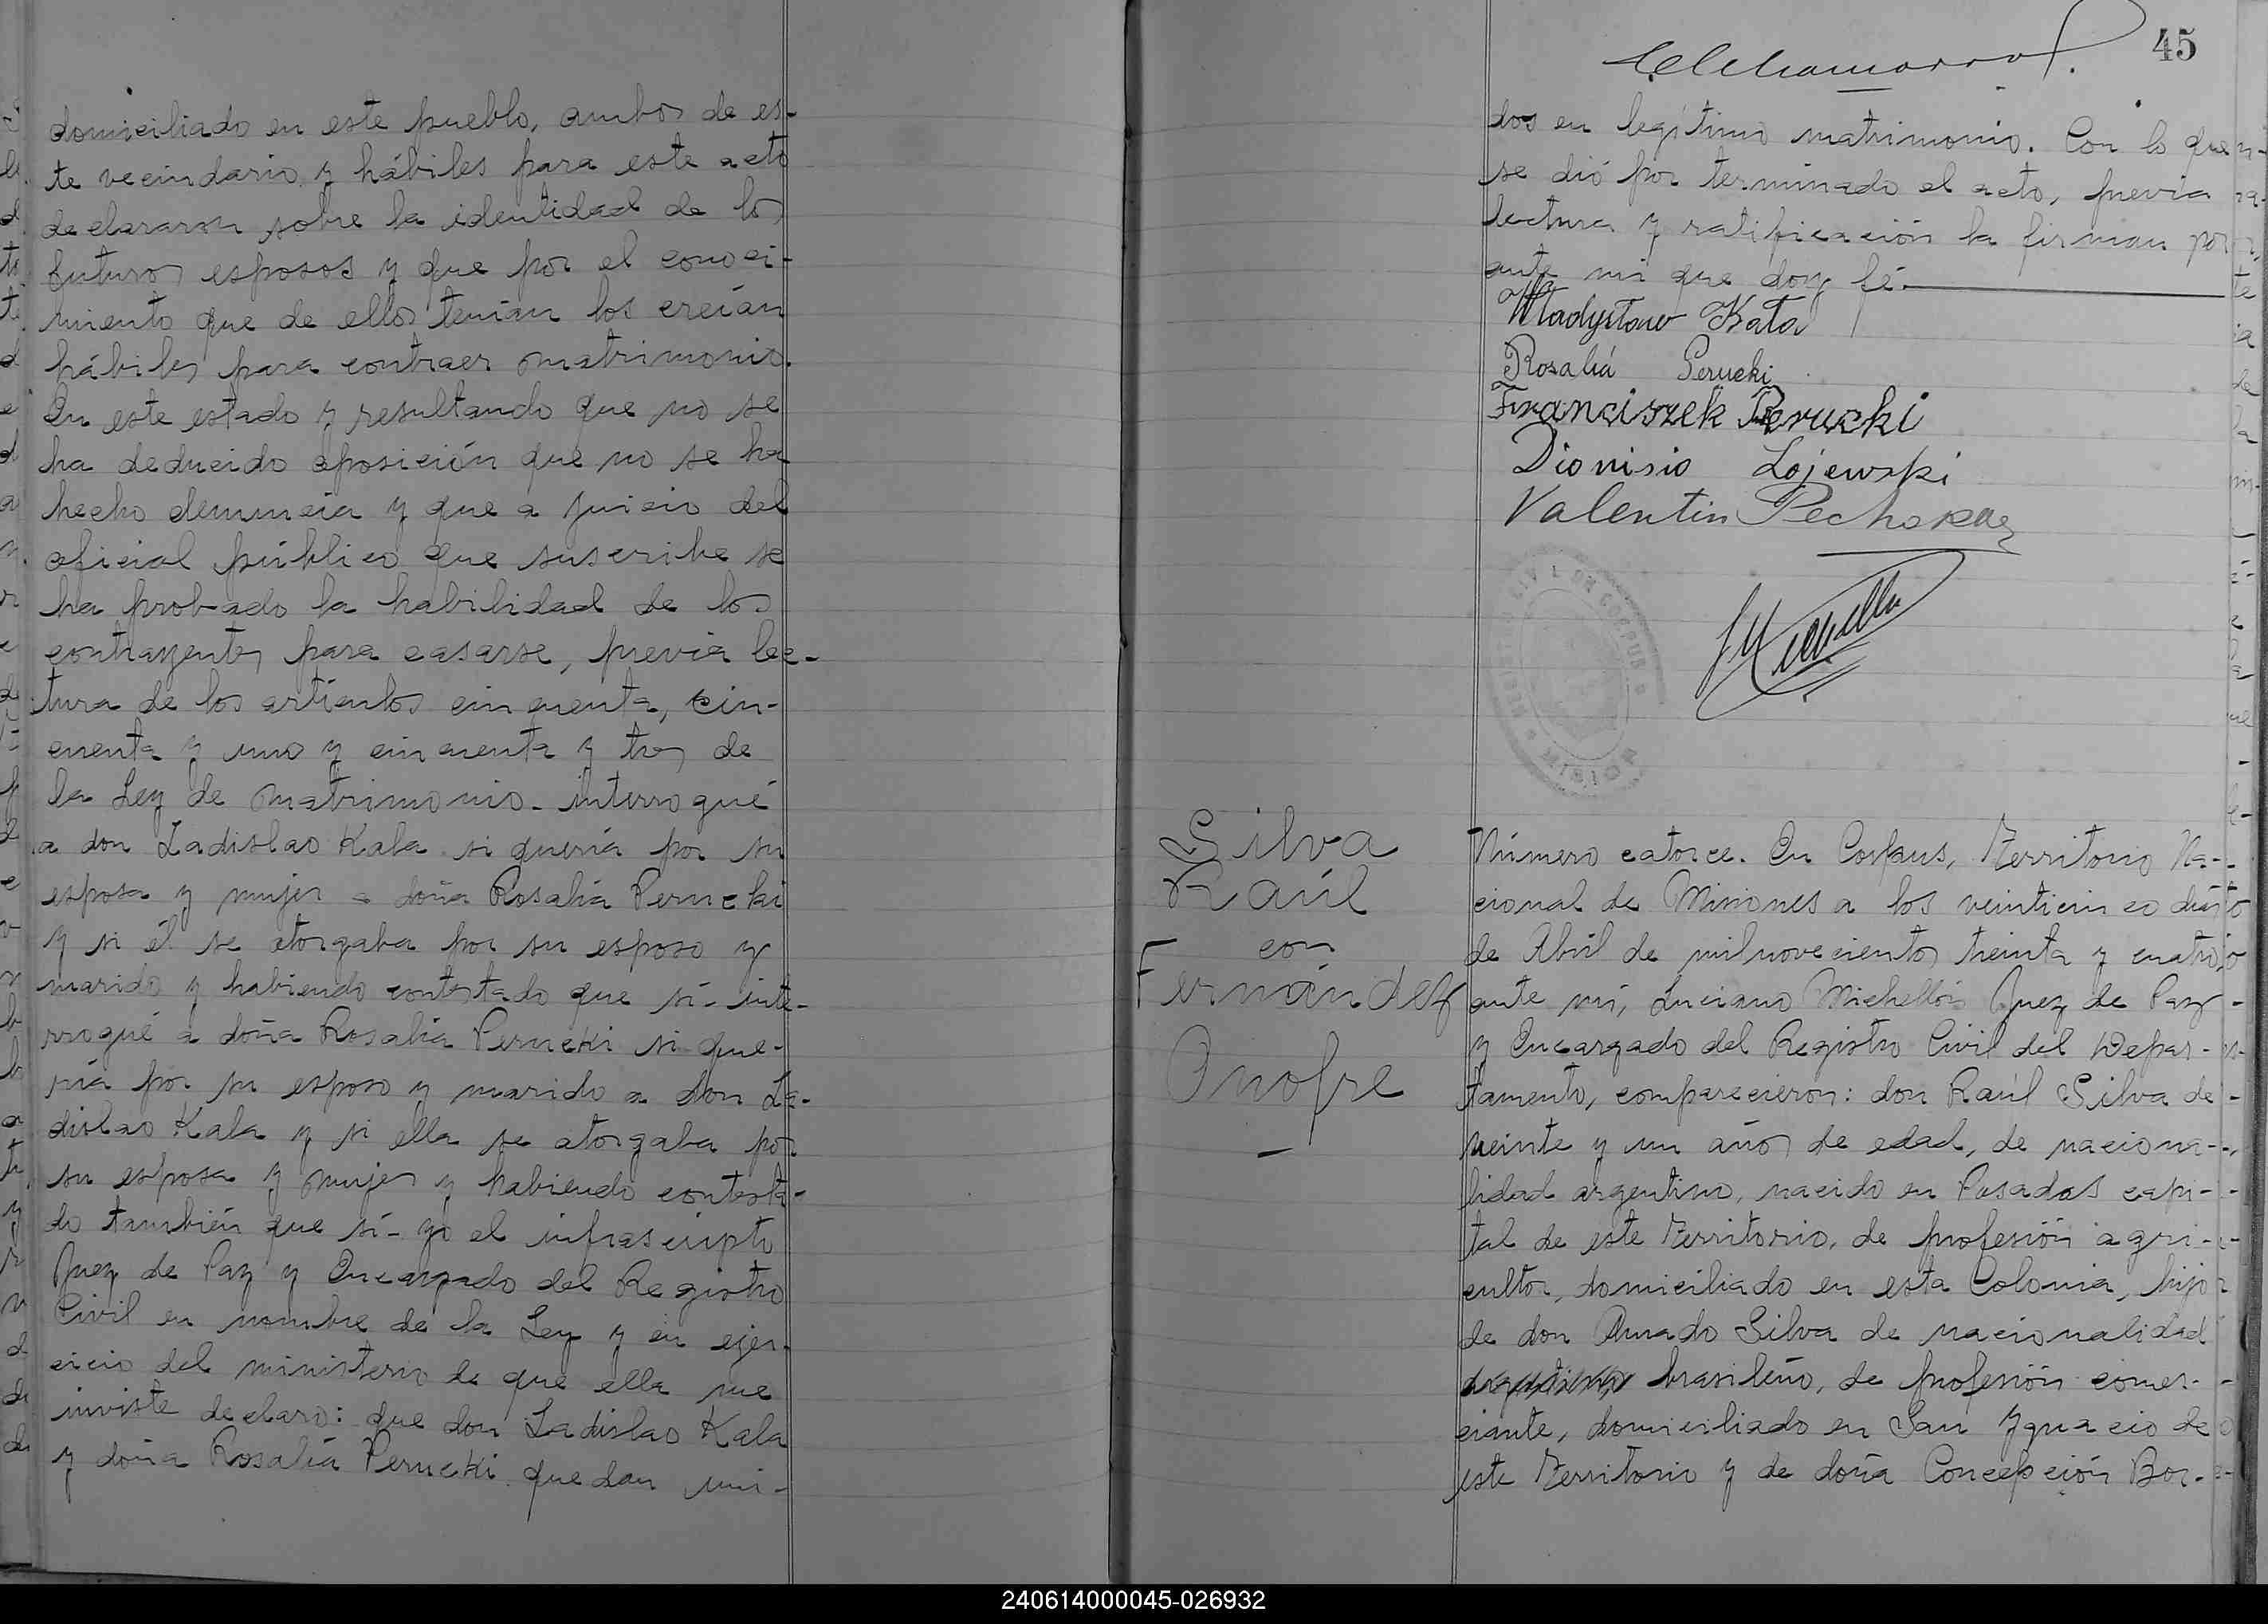 domiciliado en este pueblo, ambos de es-
te vecindario y hábiles para este acto
declararon sobre la identidad de los
futuros esposos y que por el conoci-
miento que de ellos tenían los creían
hábiles para contraer matrimonio.
En este estado y resultando que no se
ha deducido oposición que no se ha
hecho denuncia y que a juicio del
oficial público que suscribe se
ha probado la habilidad de los
contrayentes para casarse, previa lec-
tura de los artículos cincuenta, cin-
cuenta y uno y cincuenta y tres de
la Ley de Matrimonio - interrogué
a don Ladislao Kala si quería por su
esposa y mujer a doña Rosalía Perucki
y si él se otorgaba por su esposo y
marido y habiendo contestado que sí - inte-
rrogué a doña Rosalía Perucki si que-
ría por su esposo y marido a don La-
dislao Kala y si ella se otorgaba por
su esposa y mujer y habiendo contesta-
do también que sí - yo el infrascripto
Juez de Paz y Encargado del Registro
Civil en nombre de la Ley y en ejer-
cicio del ministerio de que ella me
inviste declaro: que don Ladislao Kala
y doña Rosalía Perucki quedan uni-
45
dos en legítimo matrimonio. Con lo que
se dió por terminado el acto, previa
lectura y ratificación la firman por
ante mí que doy fé.
Władysław Kała
Rosaliá Perucki
Franciszek Perucki
Dionisio Lojewski
Valentin
DE CORPUS
Silva
Raúl
con
Fernández
Onofre
Número catorce. En Corpus, Territorio Na-
cional de Misiones a los veinticinco días
de Abril de mil novecientos treinta y cuatro,
ante mí, Luciano Juez de Paz
y Encargado del Registro Civil del Depar-
tamento, comparecieron: don Raúl Silva de
veinte y un años de edad, de naciona-
lidad argentino, nacido en Posadas capi-
tal de este Territorio, de profesión agri-
cultor, domiciliado en esta Colonia, hijo
de don Amado Silva de nacionalidad
argentino brasileño, de profesión comer-
ciante, domiciliado en San Ygnacio de
este Territorio y de doña Concepción Bor-
240614000045-026932